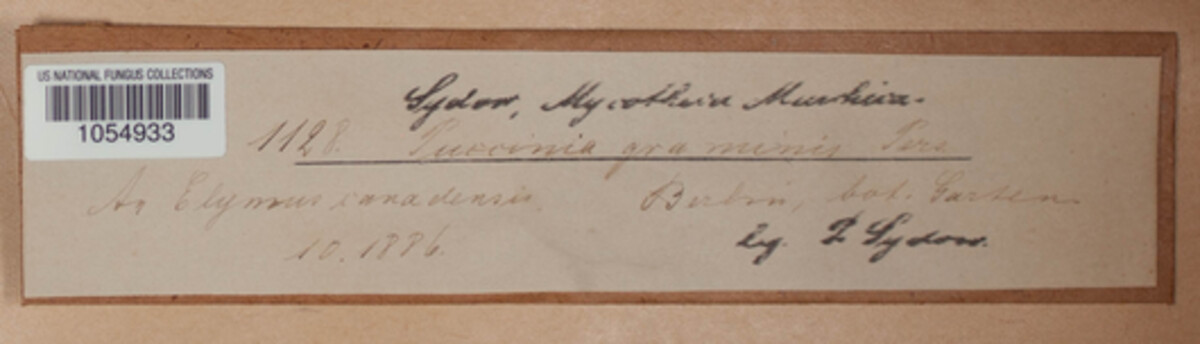 US NATIONAL FUNGUS COLLECTIONS
1054933
Sydow, Mycotheca Marchica.
1128. Puccinia graminis Pers
An Elymus canadensis. Berlin, bot. Garten.
10. 1886. leg. P Sydow.